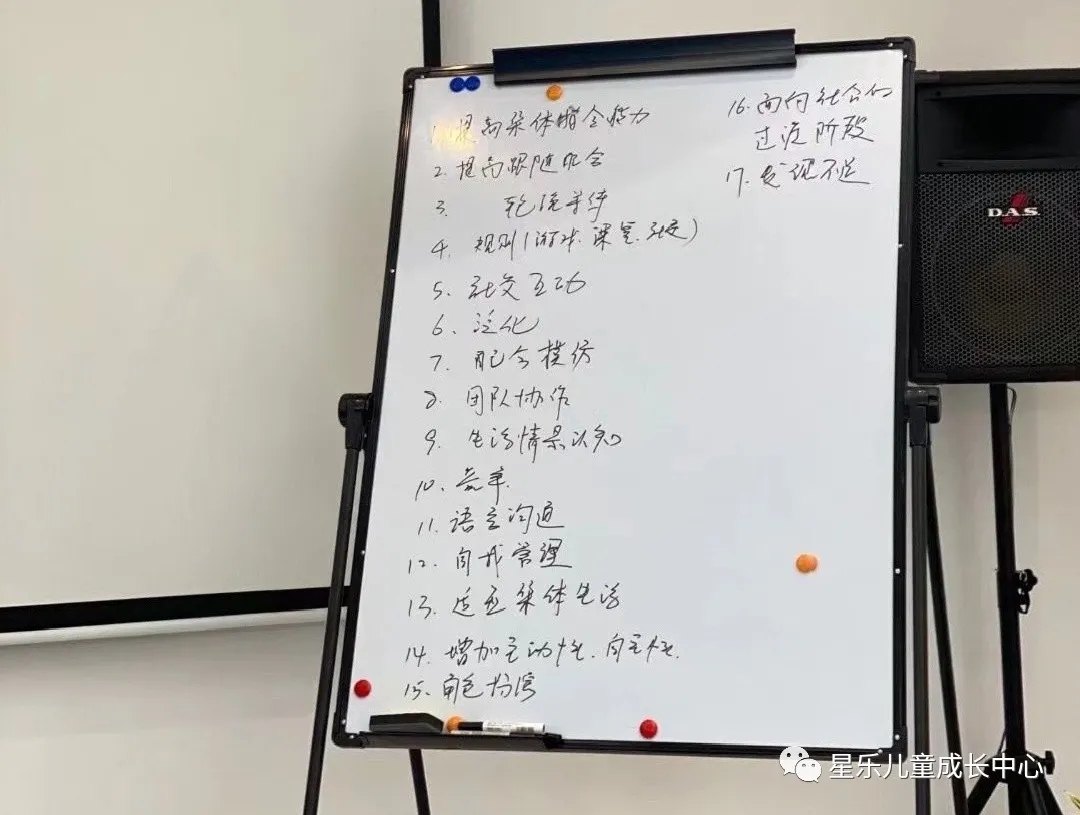 1. 提高集体指令能力
2. 提高跟随配合
3. 轮流等待
4. 规则(游戏.课堂.社交)
5. 社交互动
6. 泛化
7. 配合模仿
8. 团队协作
9. 生活情景认知
10. 竞争.
11. 语言沟通
12. 自我管理
13. 适应集体生活
14. 增加主动性.自主性.
15. 角色扮演
16. 面向社会的
过渡阶段
17. 发现不足
D.A.S.
星乐儿童成长中心